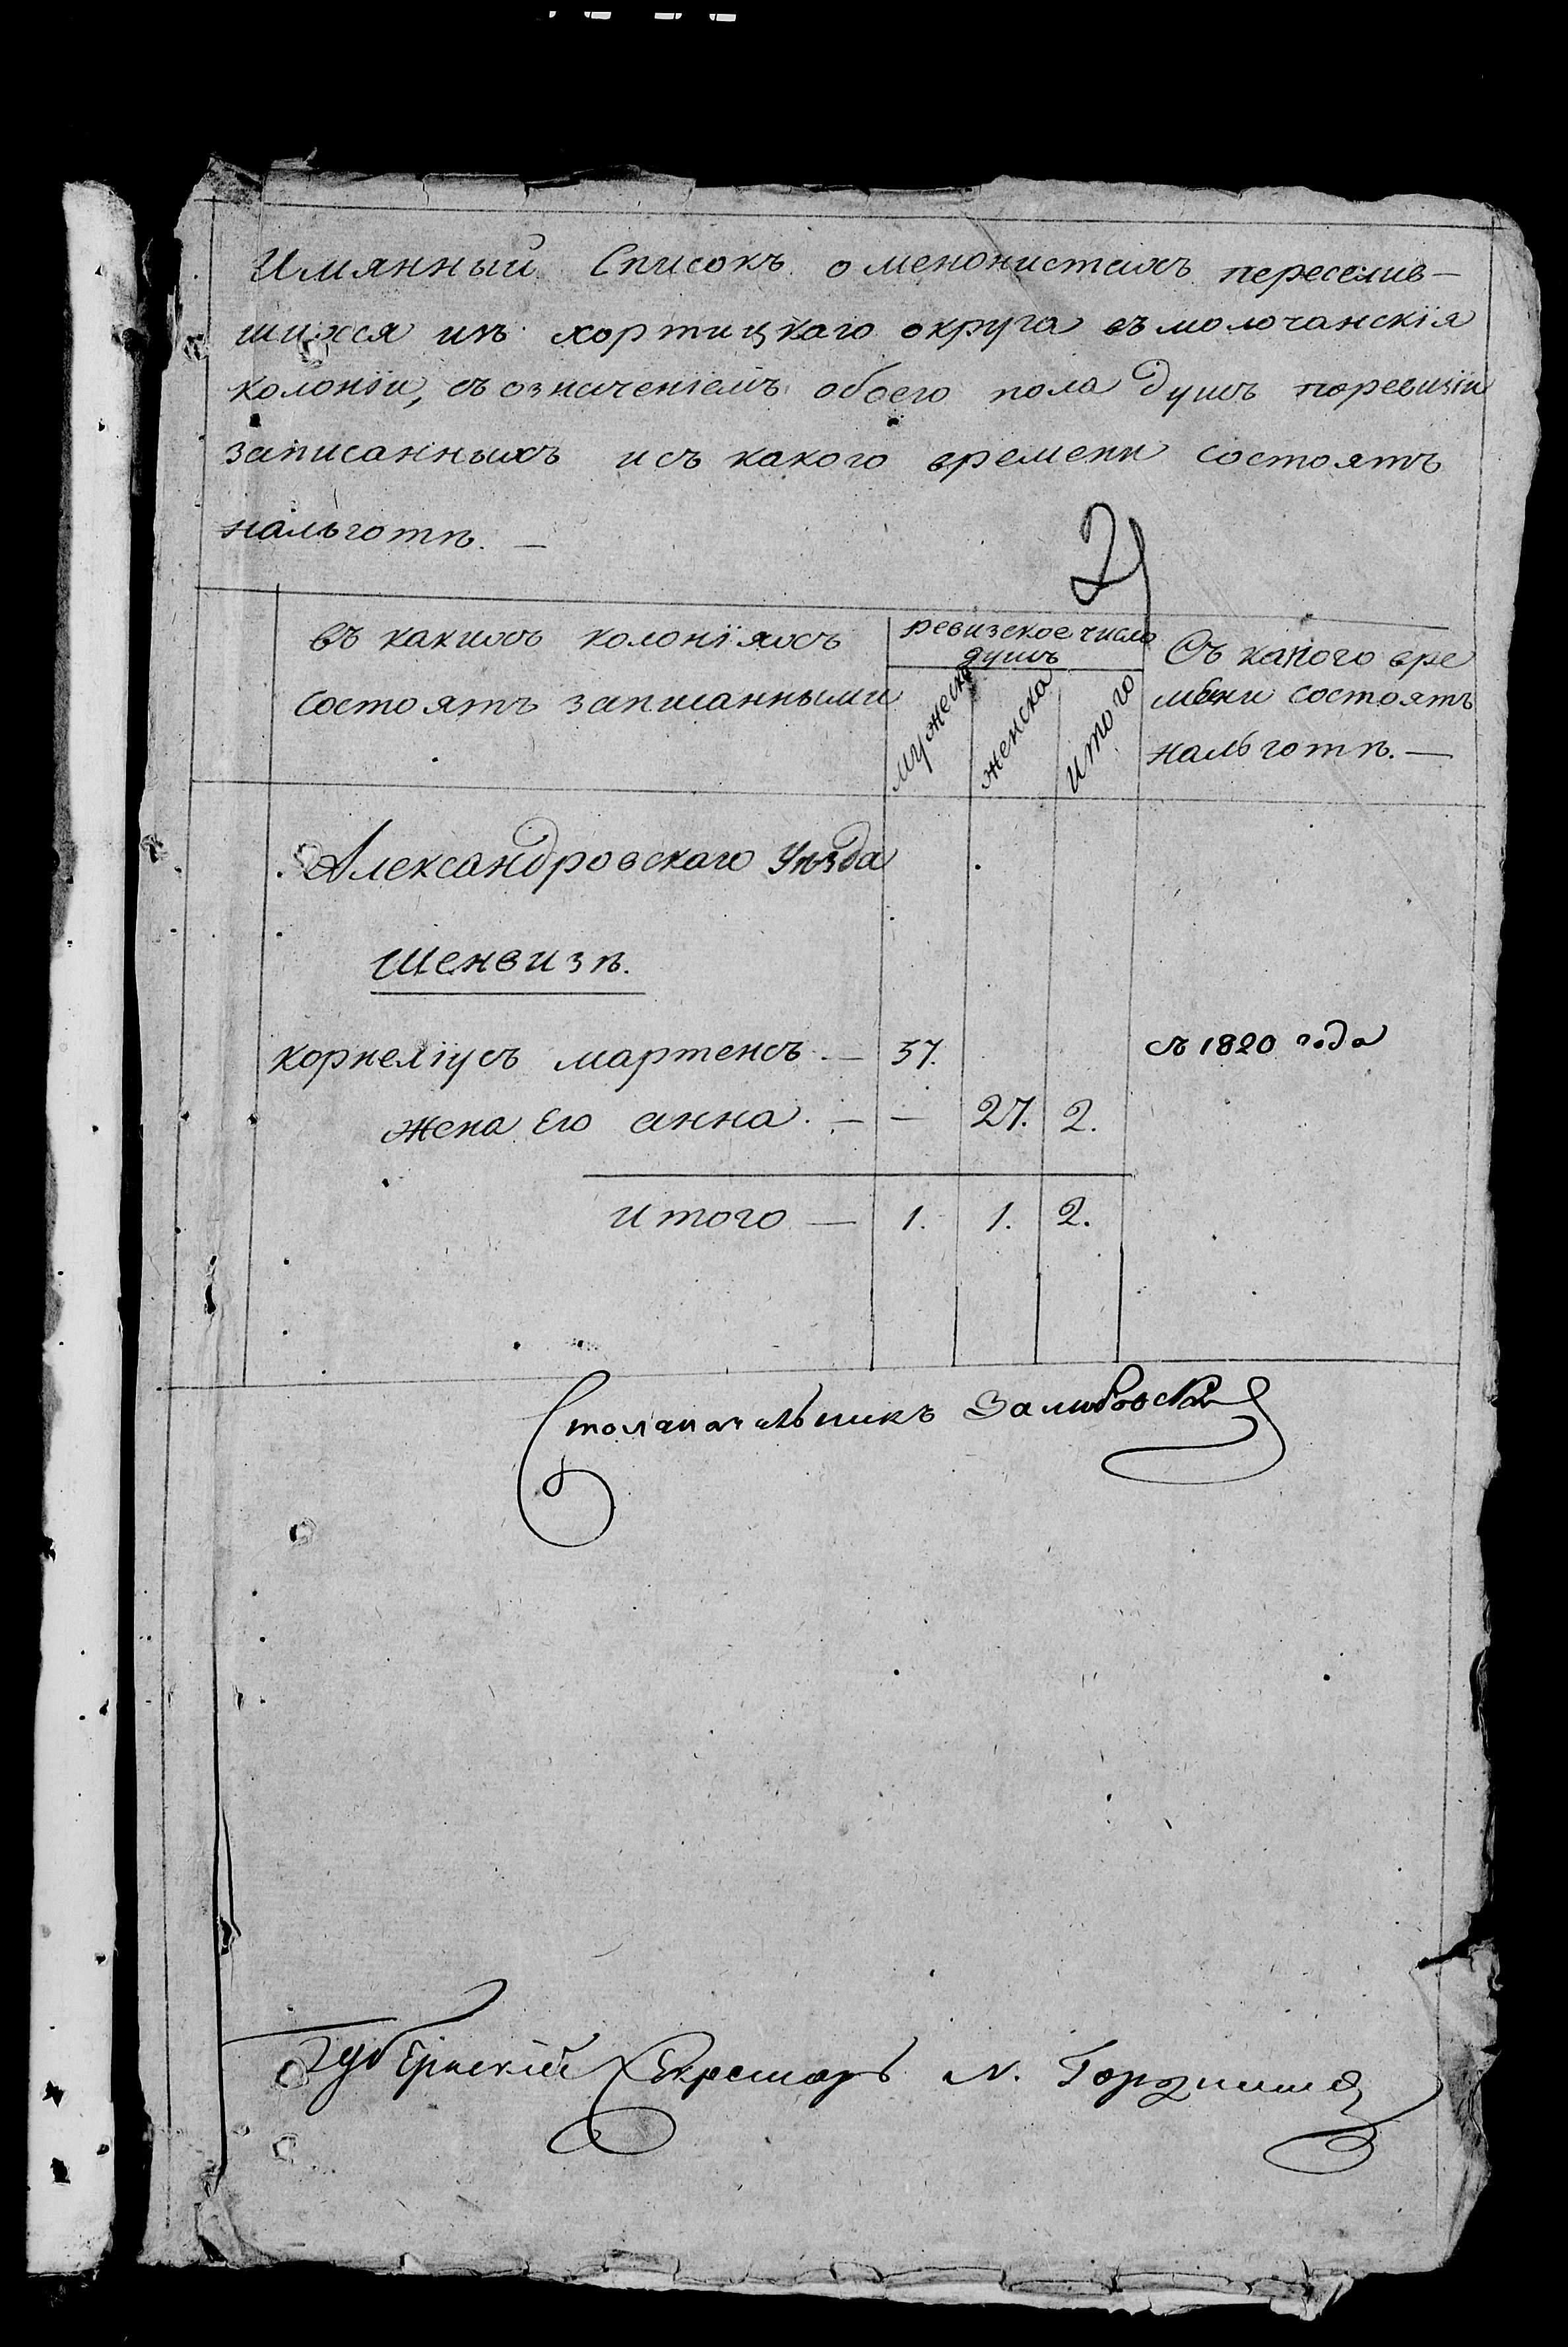 Имянный Списокъ о менонистахъ переселив-
шихся изъ хортицкаго округа въ молочанскія
колоніи, съ означеніемъ обоего пола душъ поревизіи
записанныхъ исъ какого времени состоятъ
нальготѣ. —
2
въ какихъ колоніяхъ
состоятъ записанными
ревизское число
душъ
мужеска
женска
итого
Съ какого вре
мени состоятъ
нальготѣ. —
Александровскаго Уѣзда
Шенвизѣ.
корнеліусъ мартенсъ. — 37. съ 1820 года
жена Его анна. — — 27. 2.
итого — 1. 1. 2.
Столаначальникъ
Губернскій Секретарь